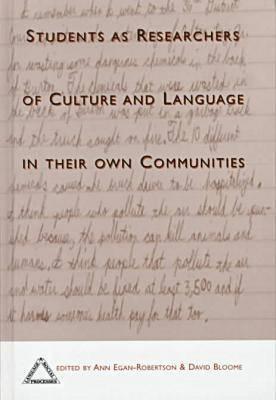 I remember when I went to the 36th District
STUDENTS AS RESEARCHERS
for wasting some dangerous chemicals in the back
of Burton. The chemicals that were wasted in
OF CULTURE AND LANGUAGE
the back of Burton was put in a garbage truck
and the truck caught on fire. The 10 different
IN THEIR OWN COMMUNITIES
chemicals caused the truck driver to be hospitalized.
I think people who pollute the air should be pun-
ished because, the pollution can kill animals and
humans. I think people that pollute the air
and water should be fined at least 3,500 and if
it harms someone's health pay for that too.
LANGUAGE & SOCIAL PROCESSES
EDITED BY ANN EGAN-ROBERTSON & DAVID BLOOME